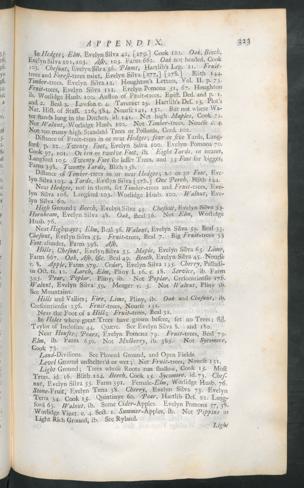 APPENDIX. 323
In Hedges, Elm. Evelyn Silva 42, [279.] Cook 102. Oak, Beech,
Evelyn Silva 201, 203. Ash, 103. Farm 662. Oak not headed, Cook
103. Chesnut, Evelyn Silva 56. Plums, Hartlib's Leg. 21. Fruit-
trees and Forest-trees mixt, Evelyn Silva [277,] [278.] Blith 144.
Timber-trees. Evelyn Silva 121. Houghton's Letters, Vol. II. p. 73.
Fruit-trees, Evelyn Silva 121. Evelyn Pomona 51, 67. Houghton
ib. Worlidge Husb. 100. Austen of Fruit-trees. Epist. Ded. and Pref.
and 2. Beal 2. Lawson c. 4. Taverner 25. Hartlib's Def. 13. Plot's
Nat. Hist. of Staff. 226, 384. Nourse 121, 131. But not where Wa-
ter stands long in the Ditches. id. 141. Not high Maples, Cook 72.
Not Walnut, Worlidge Husb. 102. Not Timber-trees, Nourse 28.
Not too many high Standard Trees or Pollards, Cook 102.
Distance of Fruit-trees in or near Hedges, four or five Yards, Lang-
ford p. 22. Twenty Foot, Evelyn Silva 100. Evelyn Pomona 70.
Cook 97, 101. Or ten or twelve Foot, ib. Eight Yards, or nearer,
Langford 105. Twenty Foot for lesser Trees, and 33 Foot for bigger,
Farm 398. Twenty Yards, Blith 136.
Distance of Timber-trees in or near Hedges, 20 or 30 Feet, Eve-
lyn Silva 100. 4 Yards, Evelyn Silva [276.] One Perch, Blith 124.
Near Hedges, not in them, set Timber-trees and Fruit-trees, Eve-
lyn Silva 206. Langford 105. Worlidge Husb. 100. Walnut, Eve-
lyn Silva 60.
High Grounds; Beech, Evelyn Silva 49. Chesnut, Evelyn Silva 53.
Hornbeam, Evelyn Silva 48. Oak, Beal 36. Not Elm, Worlidge
Husb. 76.
Near Highways; Elm, Beal 36. Walnut, Evelyn Silva 59. Beal 33.
Chesnut, Evelyn Silva 55. Fruit-trees, Beal 7. Big Fruit-trees 33
Foot asunder, Farm 398. Ash.
Hills, Chesnut, Evelyn Silva 53. Maple, Evelyn Silva 65. Lime,
Farm 667. Oak, Ash, &c. Beal 49. Beech, Evelyn Silva 49. Nourse
c. 8. Apple, Farm 379. Cedar, Evelyn Silva 125. Cherry, Pallad-
in Oct. tt. 12. Larch, Elm, Pliny l. 16. c. 18. Service, ib. Farm
305. Pear, Poplar, Pliny, ib. Not Poplar, Crescentiensis 276.
Walnut, Evelyn Silva 59. Monger v. 3. Not Walnut, Pliny ib.
See Mountains.
Hills and Vallies; Firr, Lime, Pliny, ib. Oak and Chesnut, ib.
Crescentiensis 236. Fruit-trees, Nourse 126.
Near the Foot of a Hill; Fruit-trees, Beal 32.
In Holes where great Trees have grown before, set no Trees; Sil.
Taylor of Inclosure 24. Quære. See Evelyn Silva 8. and 181.
Near Houses; Pears, Evelyn Pomona 79. Fruit-trees, Beal 7.
Elm, ib. Farm 650. Not Mulberry, ib. 385. Not Sycomore,
Cook 73.
Land-Divisions. See Plowed Ground, and Open Fields.
Level Ground unshelter'd or wet; Not Fruit-trees, Nourse 131.
Light Ground; Trees whose Roots run shallow, Cook 15. Most
Trees. id. 16. Blith 124. Beech, Cook 15. Sycomore, id. 73. Ches-
nut, Evelyn Silva 56. Farm 391. Female-Elm, Worlidge Husb. 76.
Stone-Fruit, Evelyn Terra 38. Cherry, Evelyn Silva 73. Evelyn
Terra 34. Cook 15. Quintinye 60. Pear, Hartlib Def. 21. Lang-
ford 65. Walnut, ib. Some Cider-Apples. Evelyn Pomona 57, 58.
Worlidge Vinet. c. 4. Sect. 2. Summer-Apples, ib. Not Pippins in
Light Rich Ground, ib. See Ryland.
Light